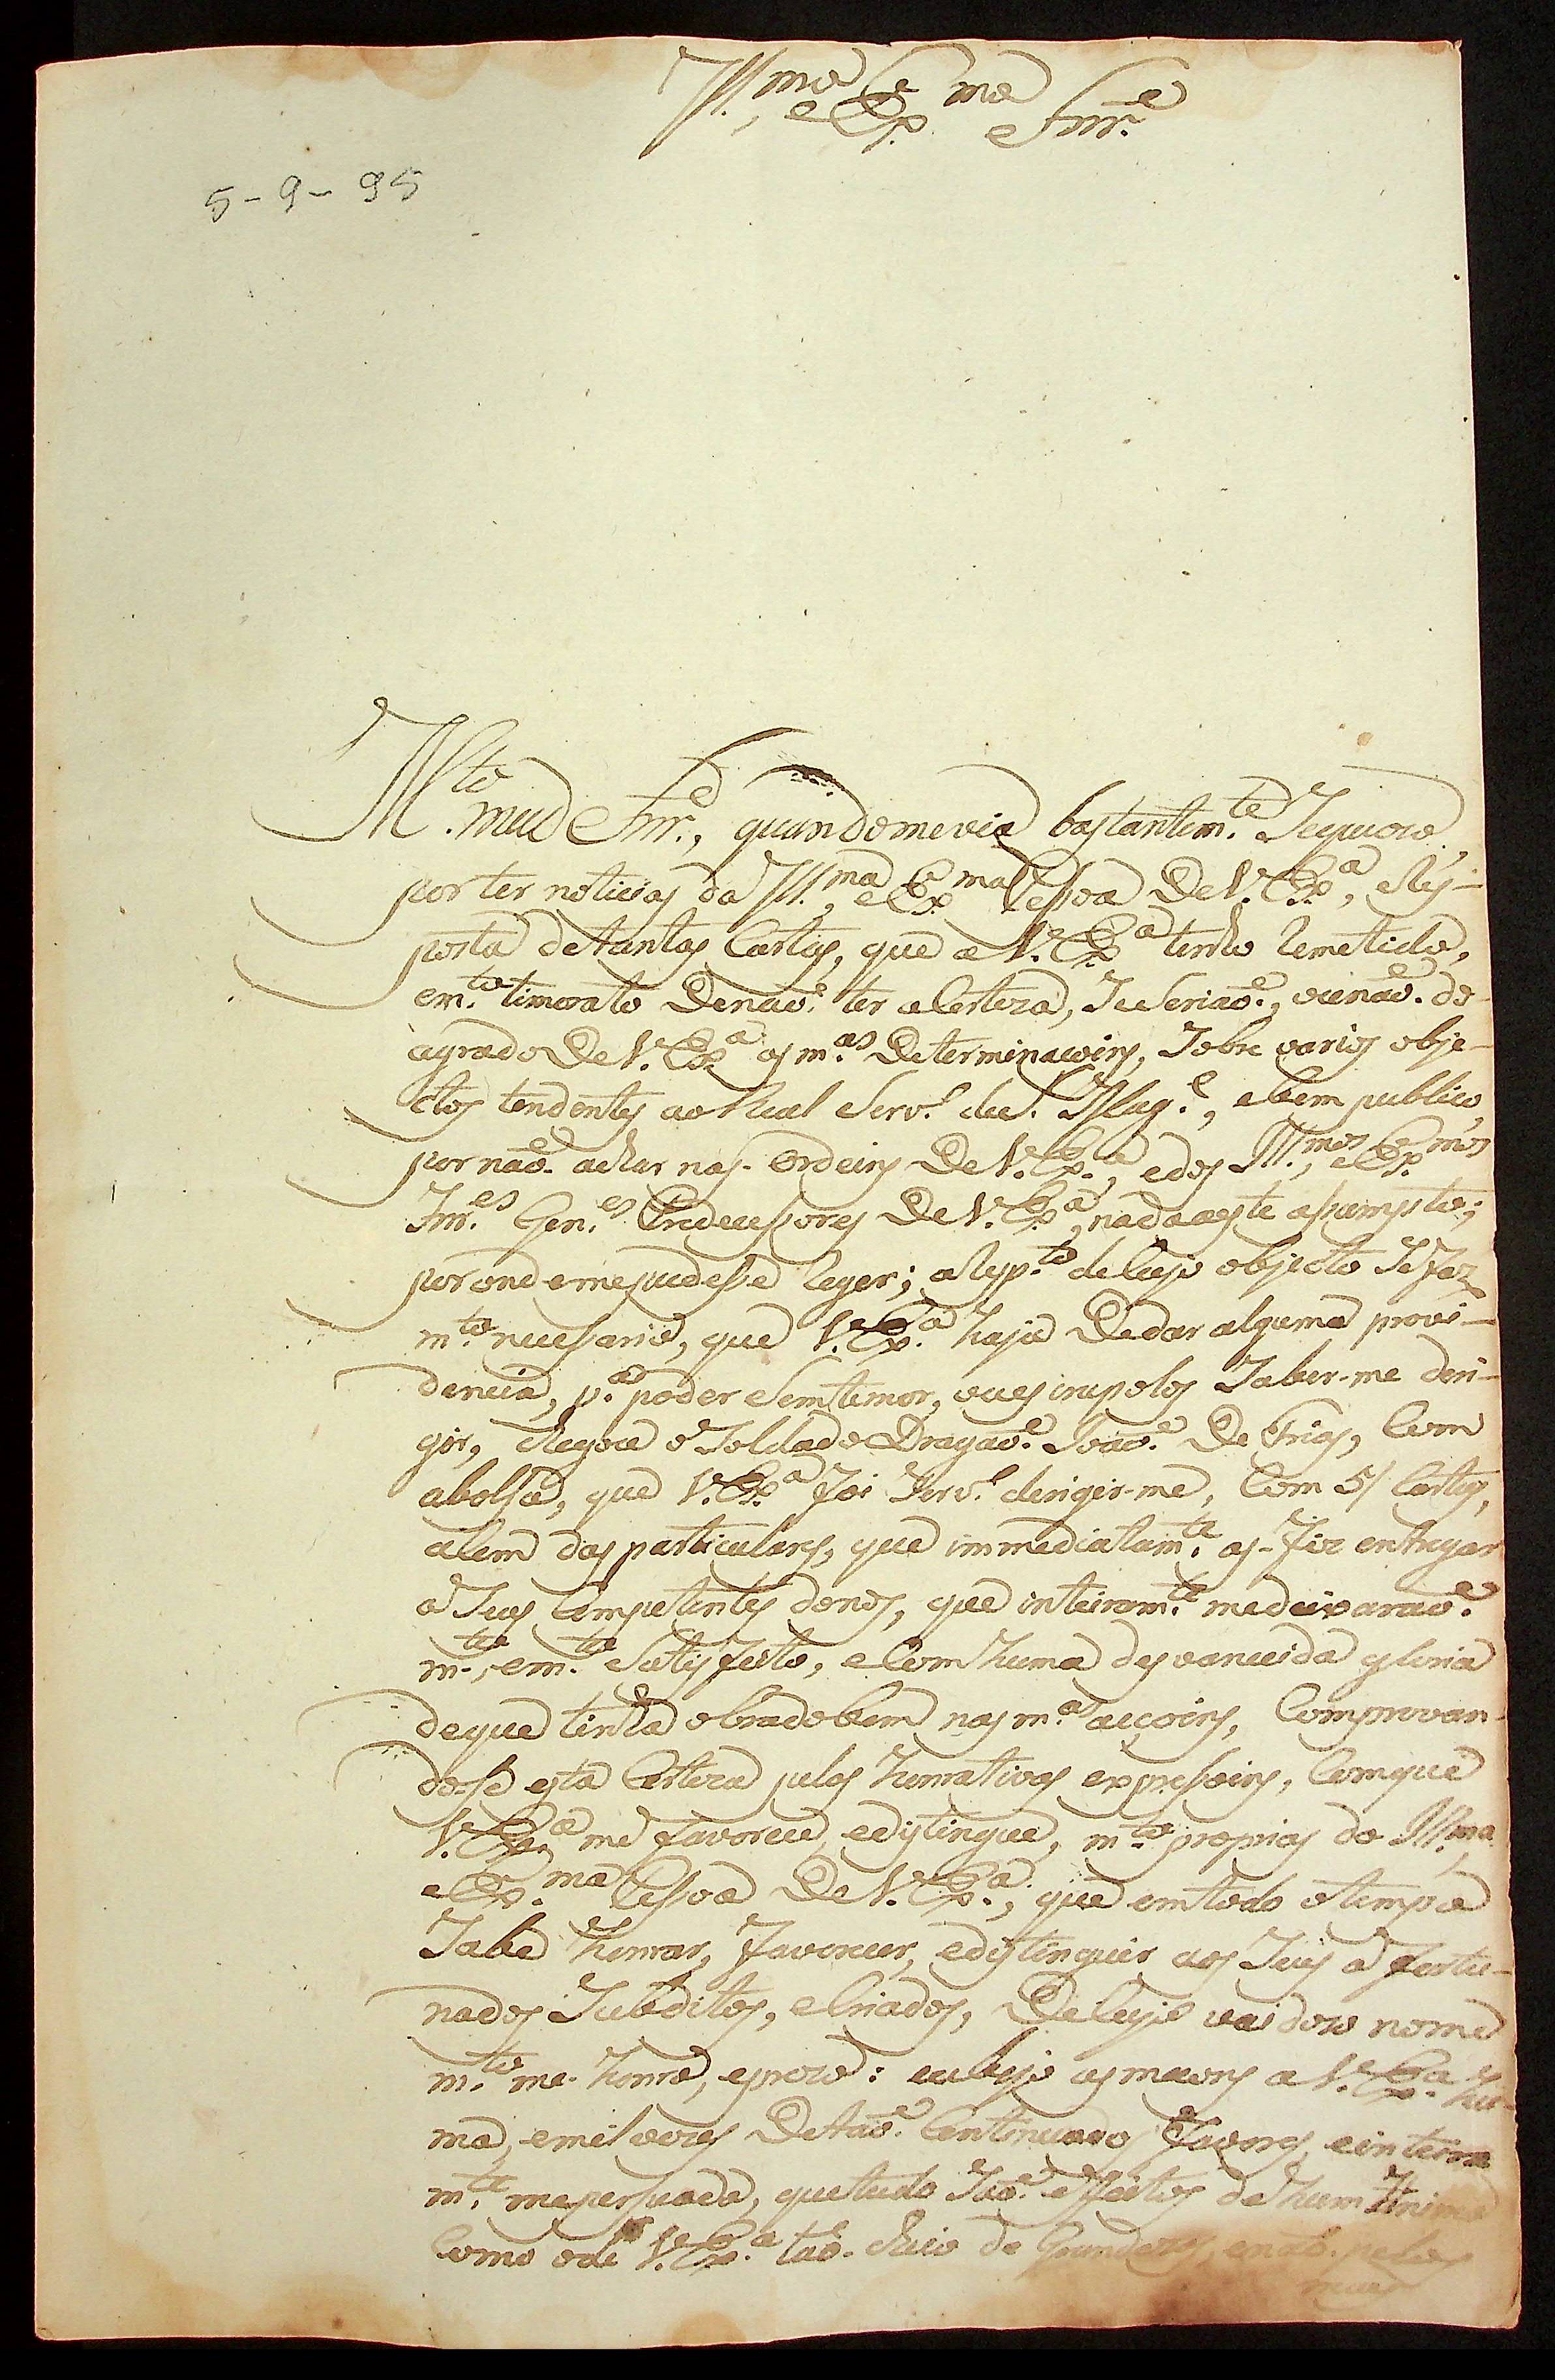 Ill.mo e Ex.mo Snr.e
5-9-95
M.to meu Snr.e, quando me via bastantem.te Sequiozo,
por ter noticias da Ill.ma, e Ex.ma Pessoa De V. Ex.a, e Res-
posta de tantas Cartas, que a V. Ex.a tenho Remetido,
e m.to timorato De naõ ter a Certeza, Se Seriaõ, ou naõ do
agrado De V. Ex.a as m.as Determinaçoins, Sobre varios obje-
ctos tendentes ao Real Serv.o de S. Mag.e, e bem publico,
por naõ achar nas Ordeins De V. Ex.a, e dos Ill.mos, e Ex.mos
Snr.es Gen.es Predecessores De V. Ex.a, nada a este asumpto;
por onde me pudesse Reger; a Resp.to de Cujo objecto Se faz
m.to necessario, que V. Ex.a haja De dar alguma provi-
dencia, p.a poder Sem temor, ou escrupolos Saber-me deri-
gir, Chegou o Soldado Dragaõ Joaõ De Frias, Com
a bolsa, que V. Ex.a foi Serv.o derigir-me, Com 5/ Cartas,
alem das particulares, que immediatam.te as fiz entregar
a Seus Competentes donos, que inteiram.te me deixaraõ
m.to, e m.to Satisfeito, e Com huma desvanecida gloria
de que tinha obrado bem nas m.as acçoins, Comprovan-
do-se esta Certeza pelas honrativas expressoins, Com que
V. Ex.a me favorece, e distingue, m.to proprias da Ill.ma
e Ex.ma Pessoa De V. Ex.a, que em todo o tempo
Sabe honrar, favorecer, e distinguir aos Seus afortu-
nados Subditos, e Criados, De Cujo vaidozo nome
m.to me honro, e prezo: eu beijo as maons a V. Ex.a hu-
ma, e mil vezes De taõ Continuados favores, e inteira
m.te me persuado, que tudo Saõ effeitos de hum Animo
Como o de V. Ex.a taõ cheio de Grandeza, e naõ pelos
meus